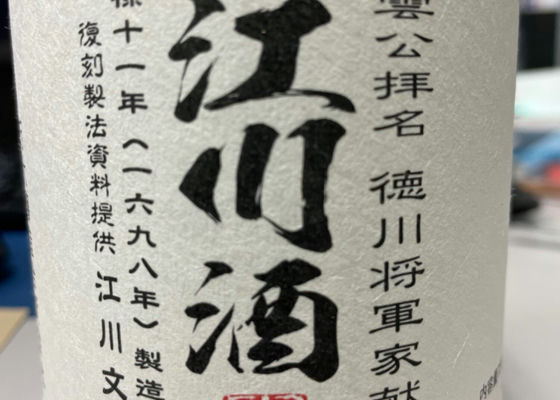 雲公拝名 徳川将軍家献
江川酒
禄十一年(一六九八年)製造
復刻製法資料提供 江川文
内容量